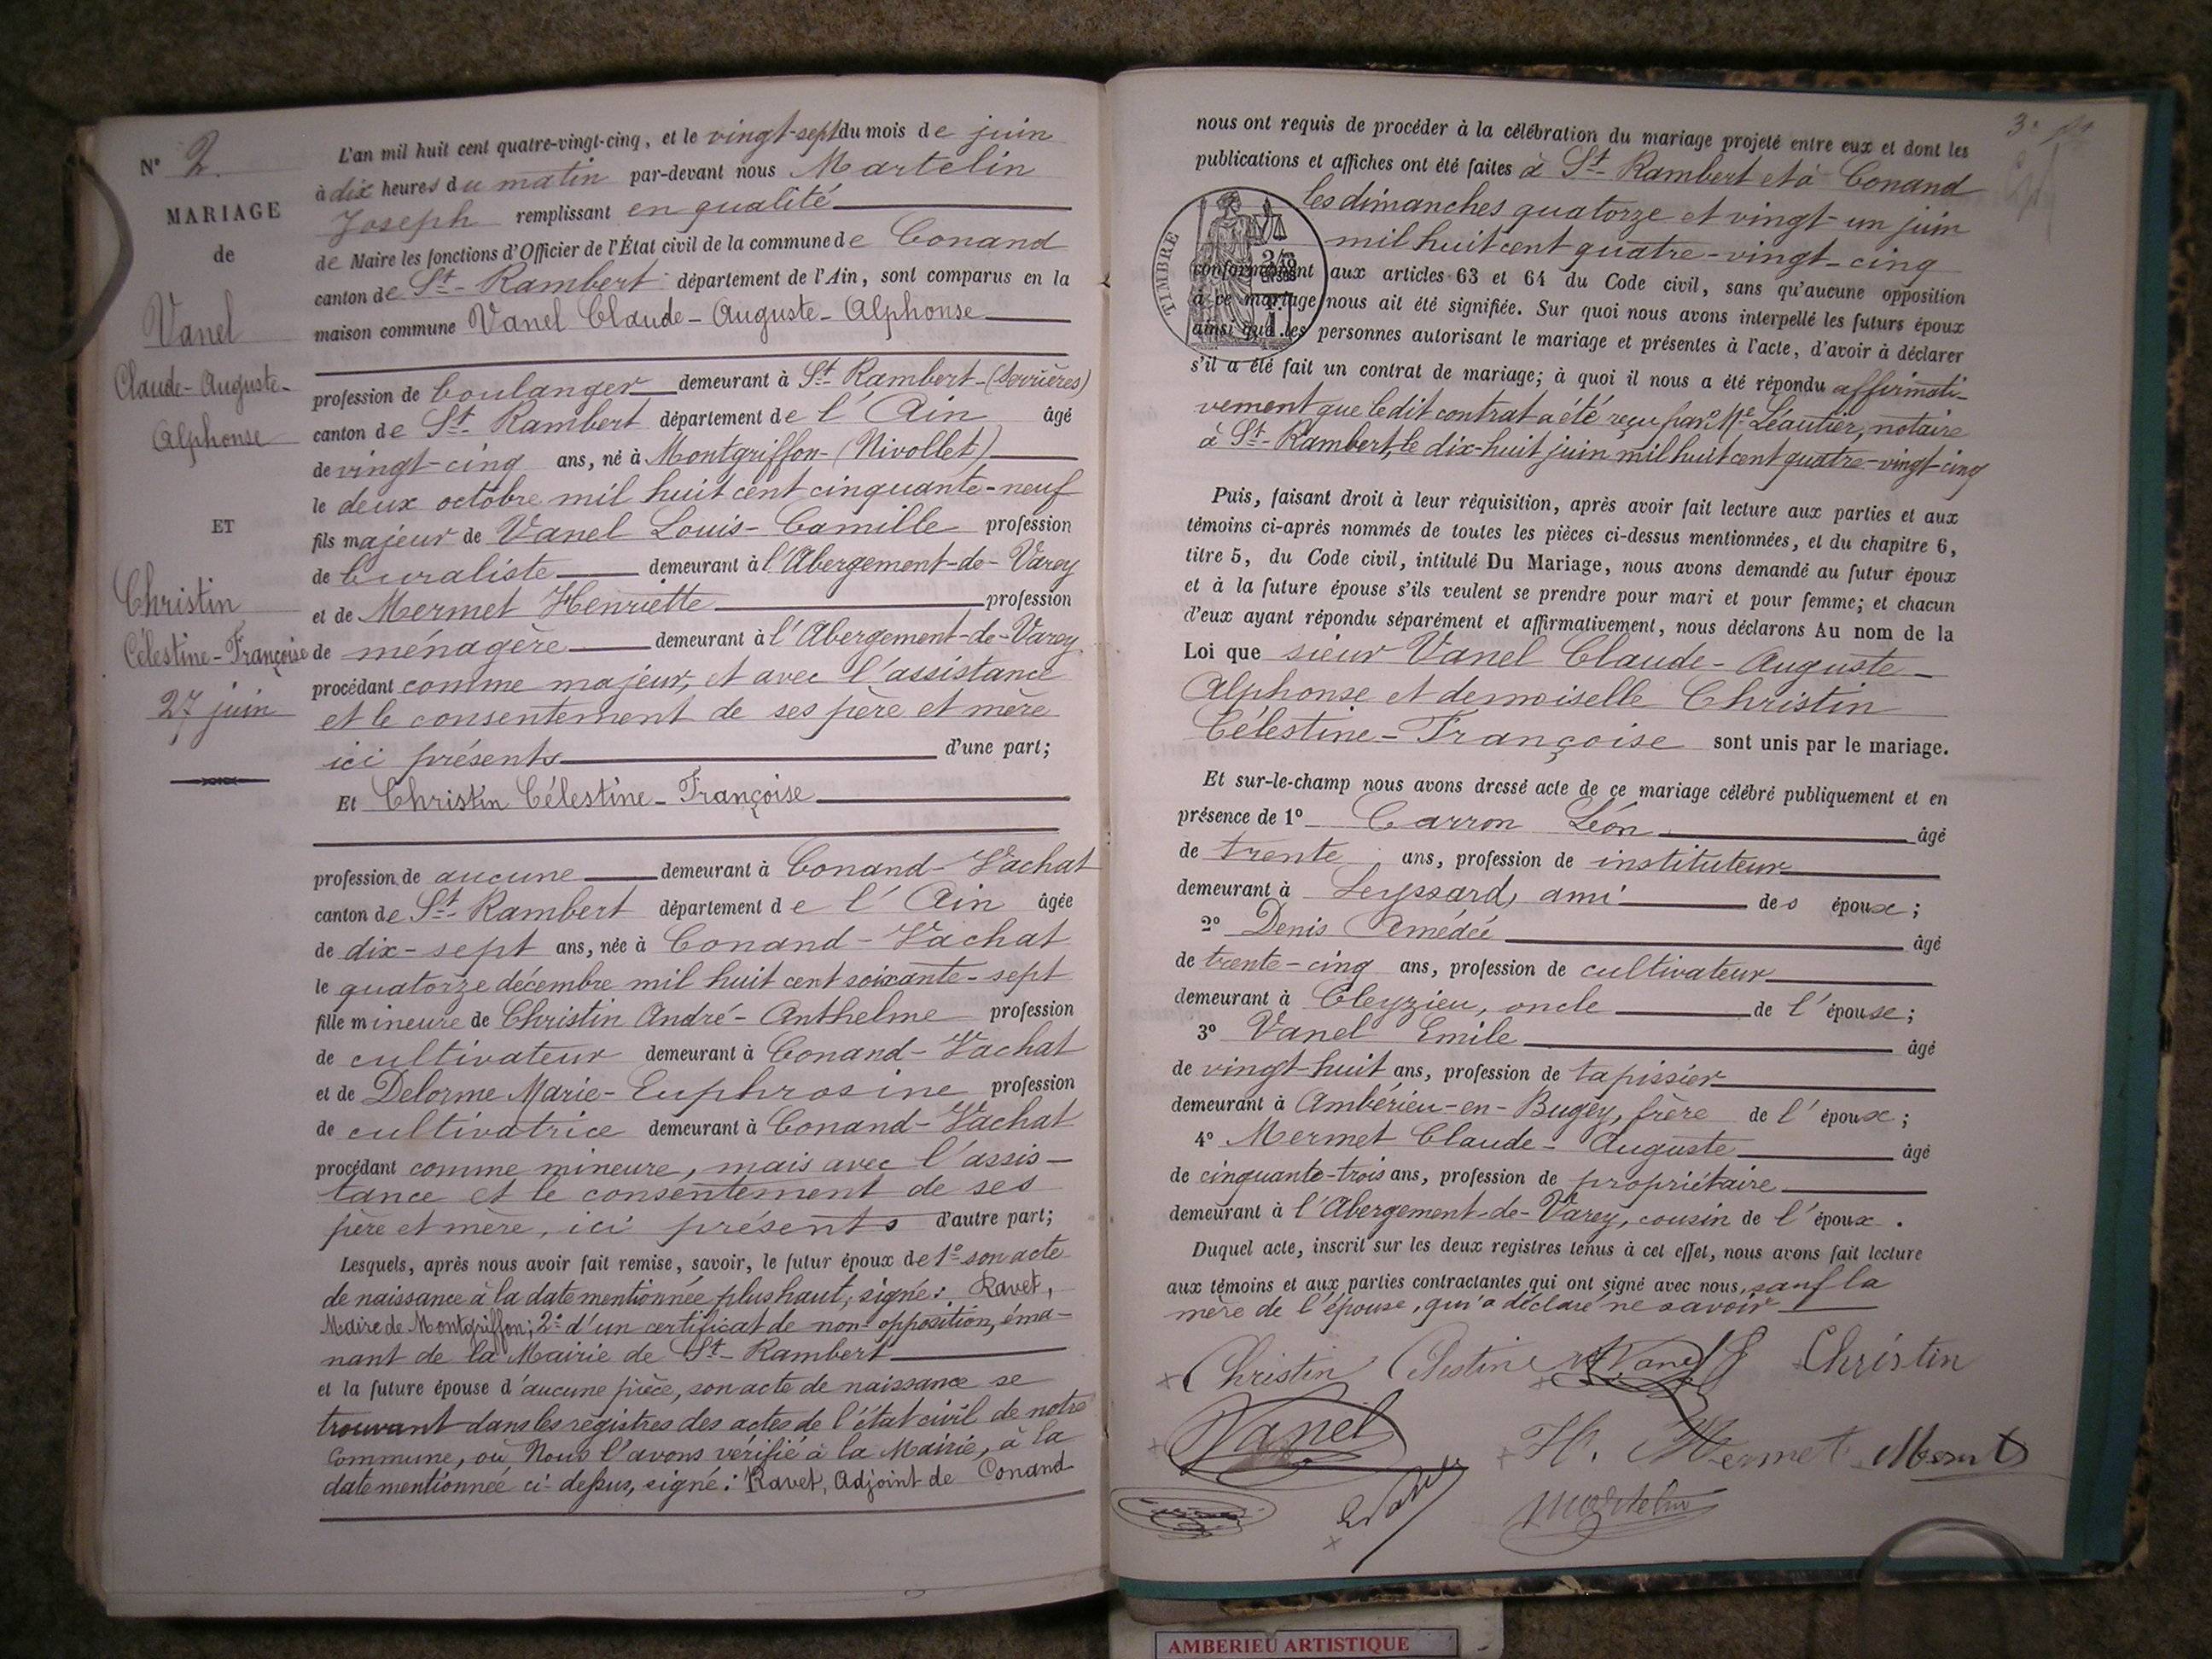 N° 2.
MARIAGE
de
Vanel
Claude-Auguste-
Alphonse
ET
Christin
Célestine-Françoise
27 juin
L'an mil huit cent quatre-vingt-cinq, et le vingt-sept du mois de juin
à dix heures du matin par-devant nous Martelin
Joseph remplissant en qualité
de Maire les fonctions d'Officier de l'État civil de la commune de Conand
canton de St-Rambert département de l'Ain, sont comparus en la
maison commune Vanel Claude-Auguste-Alphonse
profession de boulanger demeurant à St-Rambert-(Serrières)
canton de St-Rambert département de l'Ain âgé
de vingt-cinq ans, né à Montgriffon-(Nivollet)
le deux octobre mil huit cent cinquante-neuf
fils majeur de Vanel Louis-Camille profession
de buraliste demeurant à l'Abergement-de-Varey
et de Mermet Henriette profession
de ménagère demeurant à l'Abergement-de-Varey
procédant comme majeur, et avec l'assistance
et le consentement de ses père et mère
ici présents d'une part;
Et Christin Célestine-Françoise
profession de aucune demeurant à Conand-Vachat
canton de St-Rambert département de l'Ain âgée
de dix-sept ans, née à Conand-Vachat
le quatorze décembre mil huit cent soixante-sept
fille mineure de Christin André-Anthelme profession
de cultivateur demeurant à Conand-Vachat
et de Delorme Marie-Euphrosine profession
de cultivatrice demeurant à Conand-Vachat
procédant comme mineure, mais avec l'assis-
tance et le consentement de ses
père et mère, ici présents d'autre part;
Lesquels, après nous avoir fait remise, savoir, le futur époux de 1° son acte
de naissance à la date mentionnée plus haut, signé: Ravet,
Maire de Montgriffon; 2° d'un certificat de non-opposition, éma-
nant de la Mairie de St-Rambert
et la future épouse d'aucune pièce, son acte de naissance se
trouvant dans les registres des actes de l'état civil de notre
Commune, où Nous l'avons vérifié à la Mairie, à la
date mentionnée ci-dessus, signé: Ravet, Adjoint de Conand
3e
nous ont requis de procéder à la célébration du mariage projeté entre eux et dont les
publications et affiches ont été faites à St-Rambert et à Conand
les dimanches quatorze et vingt-un juin
mil huit cent quatre-vingt-cinq
TIMBRE
conformément aux articles 63 et 64 du Code civil, sans qu'aucune opposition
à ce mariage nous ait été signifiée. Sur quoi nous avons interpellé les futurs époux
ainsi que les personnes autorisant le mariage et présentes à l'acte, d'avoir à déclarer
s'il a été fait un contrat de mariage; à quoi il nous a été répondu affirmati-
vement que ledit contrat a été reçu par Me Léautier, notaire
à St-Rambert, le dix-huit juin mil huit cent quatre-vingt-cinq
Puis, faisant droit à leur réquisition, après avoir fait lecture aux parties et aux
témoins ci-après nommés de toutes les pièces ci-dessus mentionnées, et du chapitre 6,
titre 5, du Code civil, intitulé Du Mariage, nous avons demandé au futur époux
et à la future épouse s'ils veulent se prendre pour mari et pour femme; et chacun
d'eux ayant répondu séparément et affirmativement, nous déclarons Au nom de la
Loi que sieur Vanel Claude-Auguste-
Alphonse et demoiselle Christin
Célestine-Françoise sont unis par le mariage.
Et sur-le-champ nous avons dressé acte de ce mariage célébré publiquement et en
présence de 1° Carron Léon âgé
de trente ans, profession de instituteur
demeurant à Leyssard, ami des époux;
2° Denis Amédée âgé
de trente-cinq ans, profession de cultivateur
demeurant à Cleyzieu, oncle de l'épouse;
3° Vanel Emile âgé
de vingt-huit ans, profession de tapissier
demeurant à Ambérieu-en-Bugey, frère de l'époux;
4° Mermet Claude-Auguste âgé
de cinquante-trois ans, profession de propriétaire
demeurant à l'Abergement-de-Varey, cousin de l'époux.
Duquel acte, inscrit sur les deux registres tenus à cet effet, nous avons fait lecture
aux témoins et aux parties contractantes qui ont signé avec nous, sauf la
mère de l'épouse, qui a déclaré ne savoir
Christin Célestine Vanel Christin
Vanel H. Mermet Mermet
Martelin
AMBERIEU ARTISTIQUE